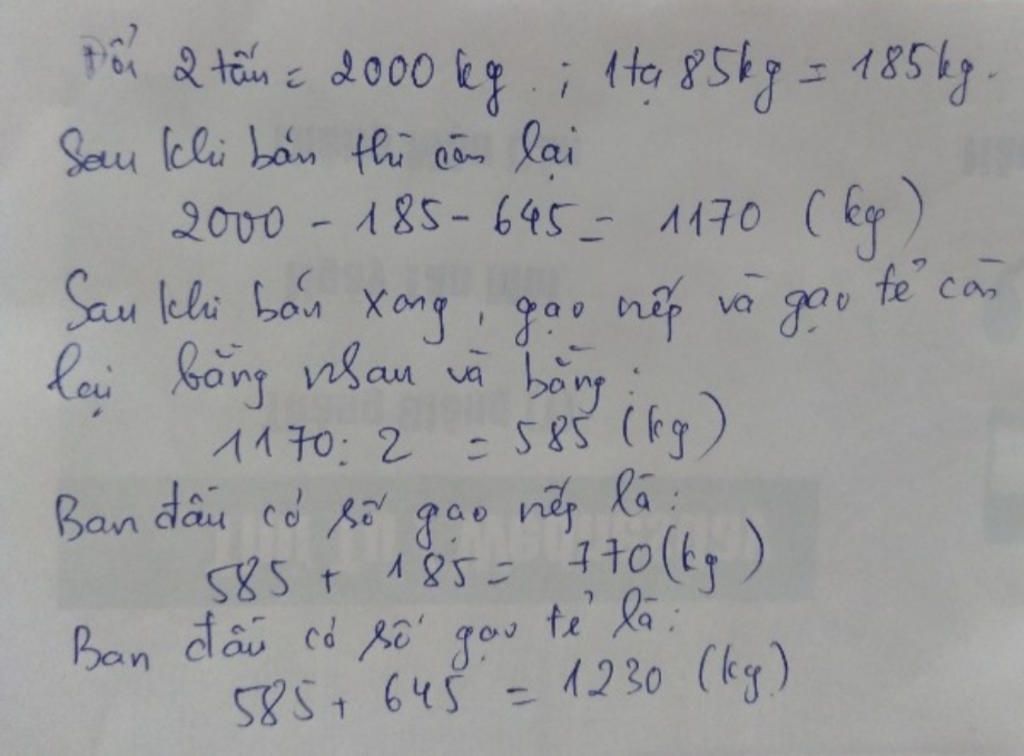 Đổi 2 tấn = 2000 kg ; 1tạ 85kg = 185kg.
Sau khi bán thì còn lại
2000 - 185 - 645 = 1170 (kg)
Sau khi bán xong, gạo nếp và gạo tẻ còn
lại bằng nhau và bằng:
1170: 2 = 585 (kg)
Ban đầu có số gạo nếp là:
585 + 185 = 770 (kg)
Ban đầu có số gạo tẻ là:
585 + 645 = 1230 (kg)